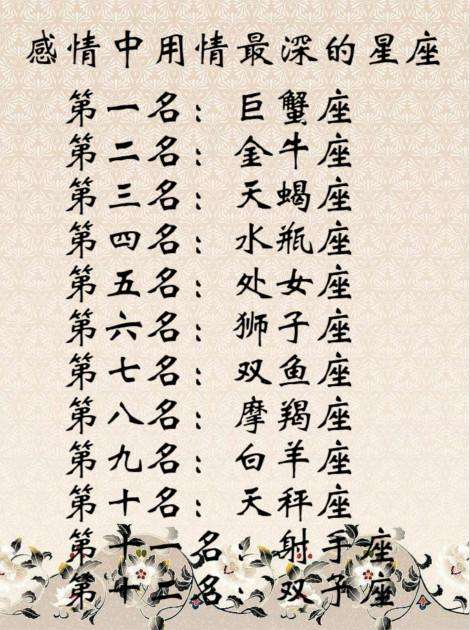 感情中用情最深的星座
第一名：巨蟹座
第二名：金牛座
第三名：天蝎座
第四名：水瓶座
第五名：处女座
第六名：狮子座
第七名：双鱼座
第八名：摩羯座
第九名：白羊座
第十名：天秤座
第十一名：射手座
第十二名：双子座